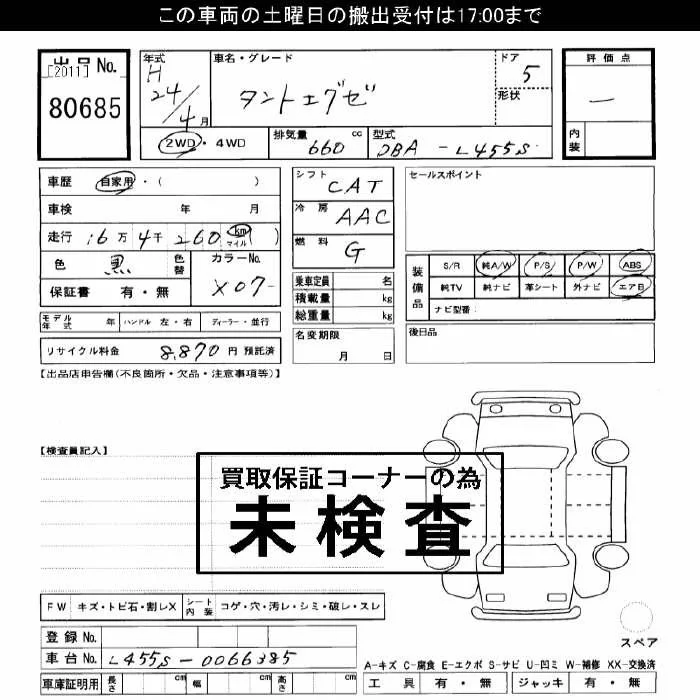 この車両の土曜日の搬出受付は17:00まで
出品No.
[2011]
80685
年式
H
24/4月
車名・グレード
タントエグゼ
ドア
5
形状
評価点
―
内装
2WD・4WD
排気量 660 cc
型式 DBA-L455S
車歴 自家用・( )
車検 年 月
走行 16万4千260 km マイル ( )
色 黒 色替
カラーNo.
X07-
保証書 有・無
シフト CAT
冷房 AAC
燃料 G
乗車定員 名
積載量 kg
総重量 kg
名変期限
月 日
セールスポイント
装備品
S/R 純A/W P/S P/W ABS
純TV 純ナビ 革シート 外ナビ エアB
ナビ型番:
後日品
モデル年式 年 ハンドル 左・右 ディーラー・並行
リサイクル料金 8,870 円 預託済
【出品店申告欄(不良箇所・欠品・注意事項等)】
【検査員記入】
買取保証コーナーの為
未検査
FW キズ・トビ石・割レX シート内装 コゲ・穴・汚レ・シミ・破レ・スレ
スペア
登録No.
車台No. L455S-0066385
A-キズ C-腐食 E-エクボ S-サビ U-凹ミ W-補修 XX-交換済
車庫証明用 長さ cm 幅 cm 高さ cm
工具 有・無 ジャッキ 有・無